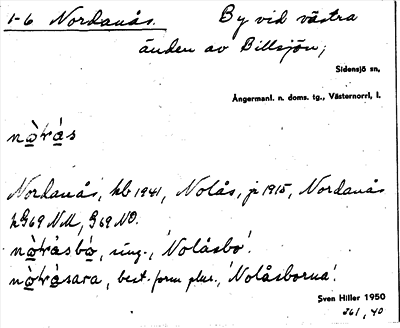 1-6 Nordanås. By vid västra
änden av Billsjön;
Sidensjö sn,
Ångermanl. n. doms. tg., Västernorrl. l.
Nordanås, hb 1941, Nolås, jr 1915, Nordanås
kG69 NM, G69 NO.
sing., 'Nolåsbo'.
best. form plur., 'Nolåsborna'.
Sven Hiller 1950
261, 40